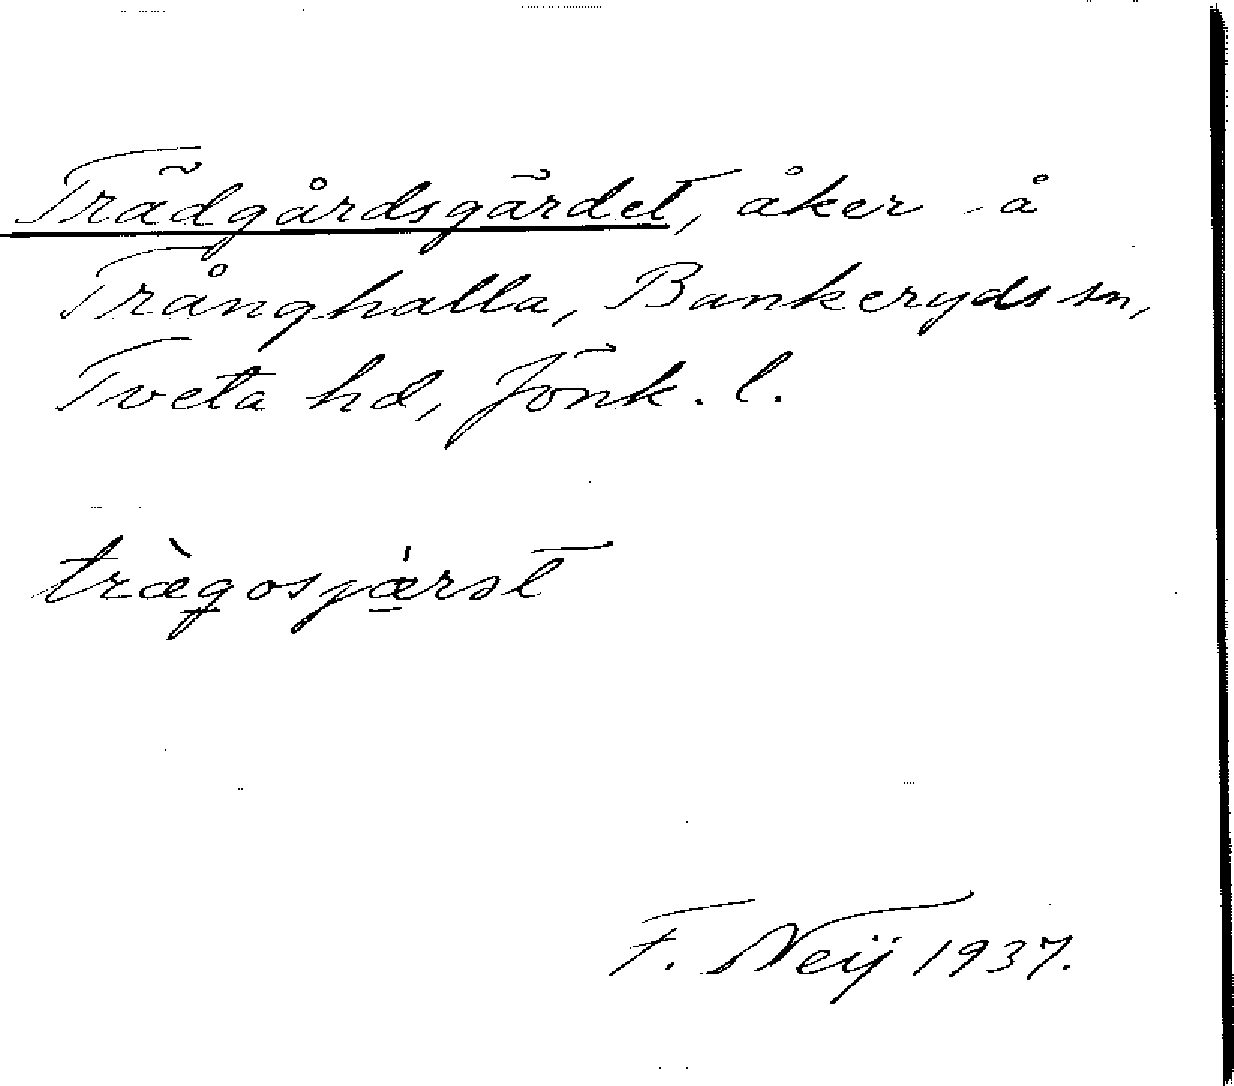 Trädgårdsgärdet, åker å
Trånghalla, Bankeryds sn,
Tveta hd, Jönk. l.
træ̀gosjǽ̣rət
F. Neij 1937.